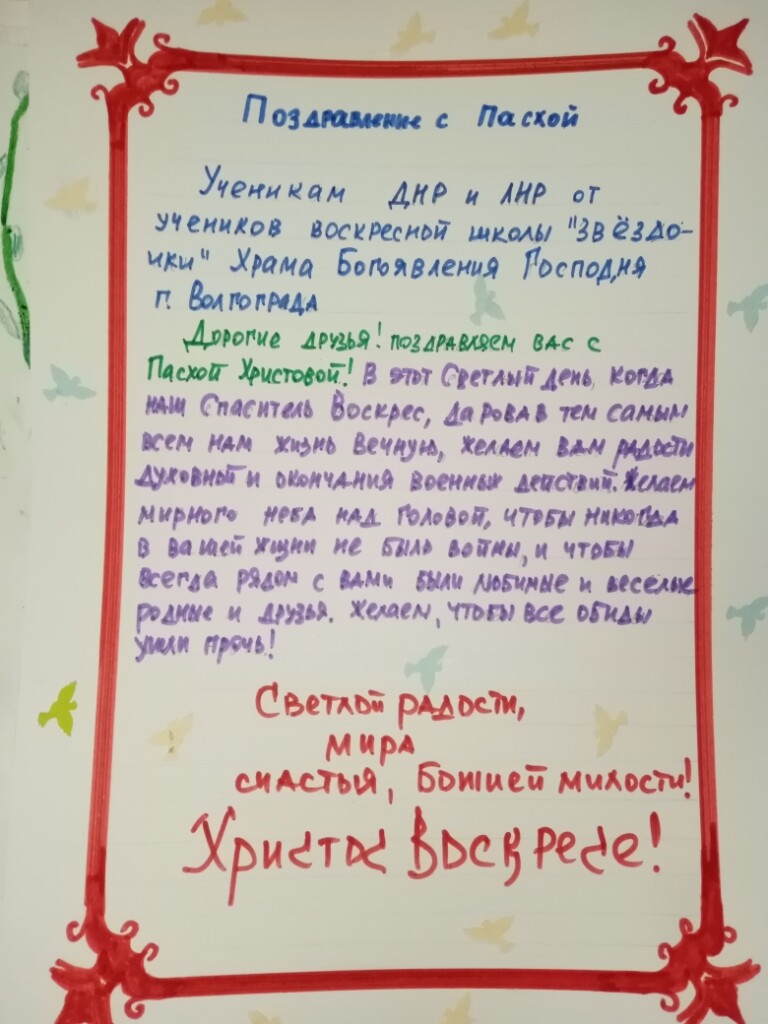 Поздравление с Пасхой
Ученикам ДНР и ЛНР от
учеников воскресной школы "Звёздо-
чки" Храма Богоявления Господня
г. Волгограда
Дорогие друзья! поздравляем вас с
Пасхой Христовой! В этот Светлый день, когда
наш Спаситель Воскрес, даровав тем самым
всем нам жизнь вечную, желаем вам радости
духовной и окончания военных действий. Желаем
мирного неба над головой, чтобы никогда
в вашей жизни не было войны, и чтобы
всегда рядом с вами были любимые и веселые
родные и друзья. Желаем, чтобы все обиды
ушли прочь!
Светлой радости,
мира
счастья, Божией милости!
Христос Воскресе!